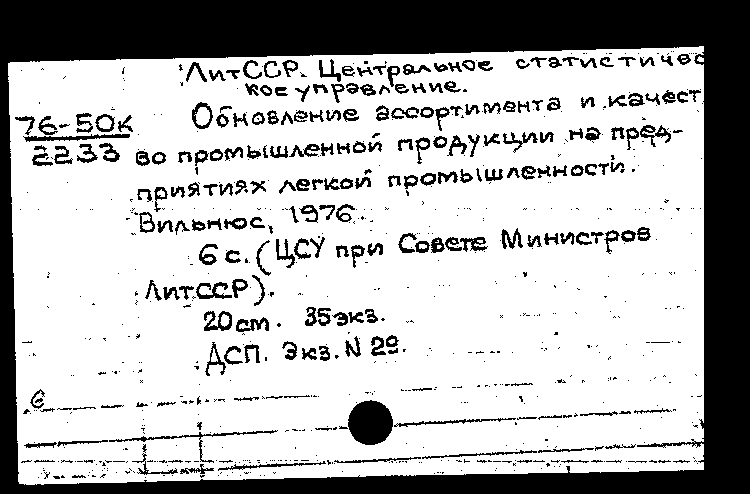 ЛитССР. Центральное статистичес
кое управление.
76-50к Обновление ассортимента и качест
2233 во промышленной продукции на пред-
приятиях легкой промышленности.
Вильнюс, 1976.
6 с. (ЦСУ при Совете Министров
ЛитССР).
20 cm. 35 экз.
ДСП. Экз. N 29.
6